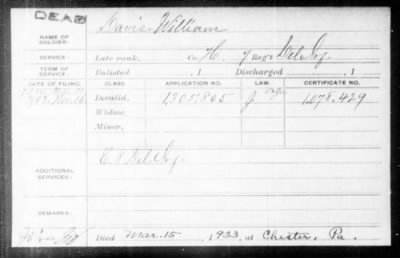 DEAD
NAME OF SOLDIER: Davis, William
SERVICE: Late rank, Co. H, 7 Reg't Del. Inf.
TERM OF SERVICE: Enlisted , 1 Discharged , 1
DATE OF FILING. CLASS. APPLICATION NO. LAW. CERTIFICATE NO.
Invalid, 1207805 1078.429
Widow,
Minor,
ADDITIONAL SERVICES: Del. Inf.
REMARKS:
Died Mar. 15, 1933, at Chester, Pa.